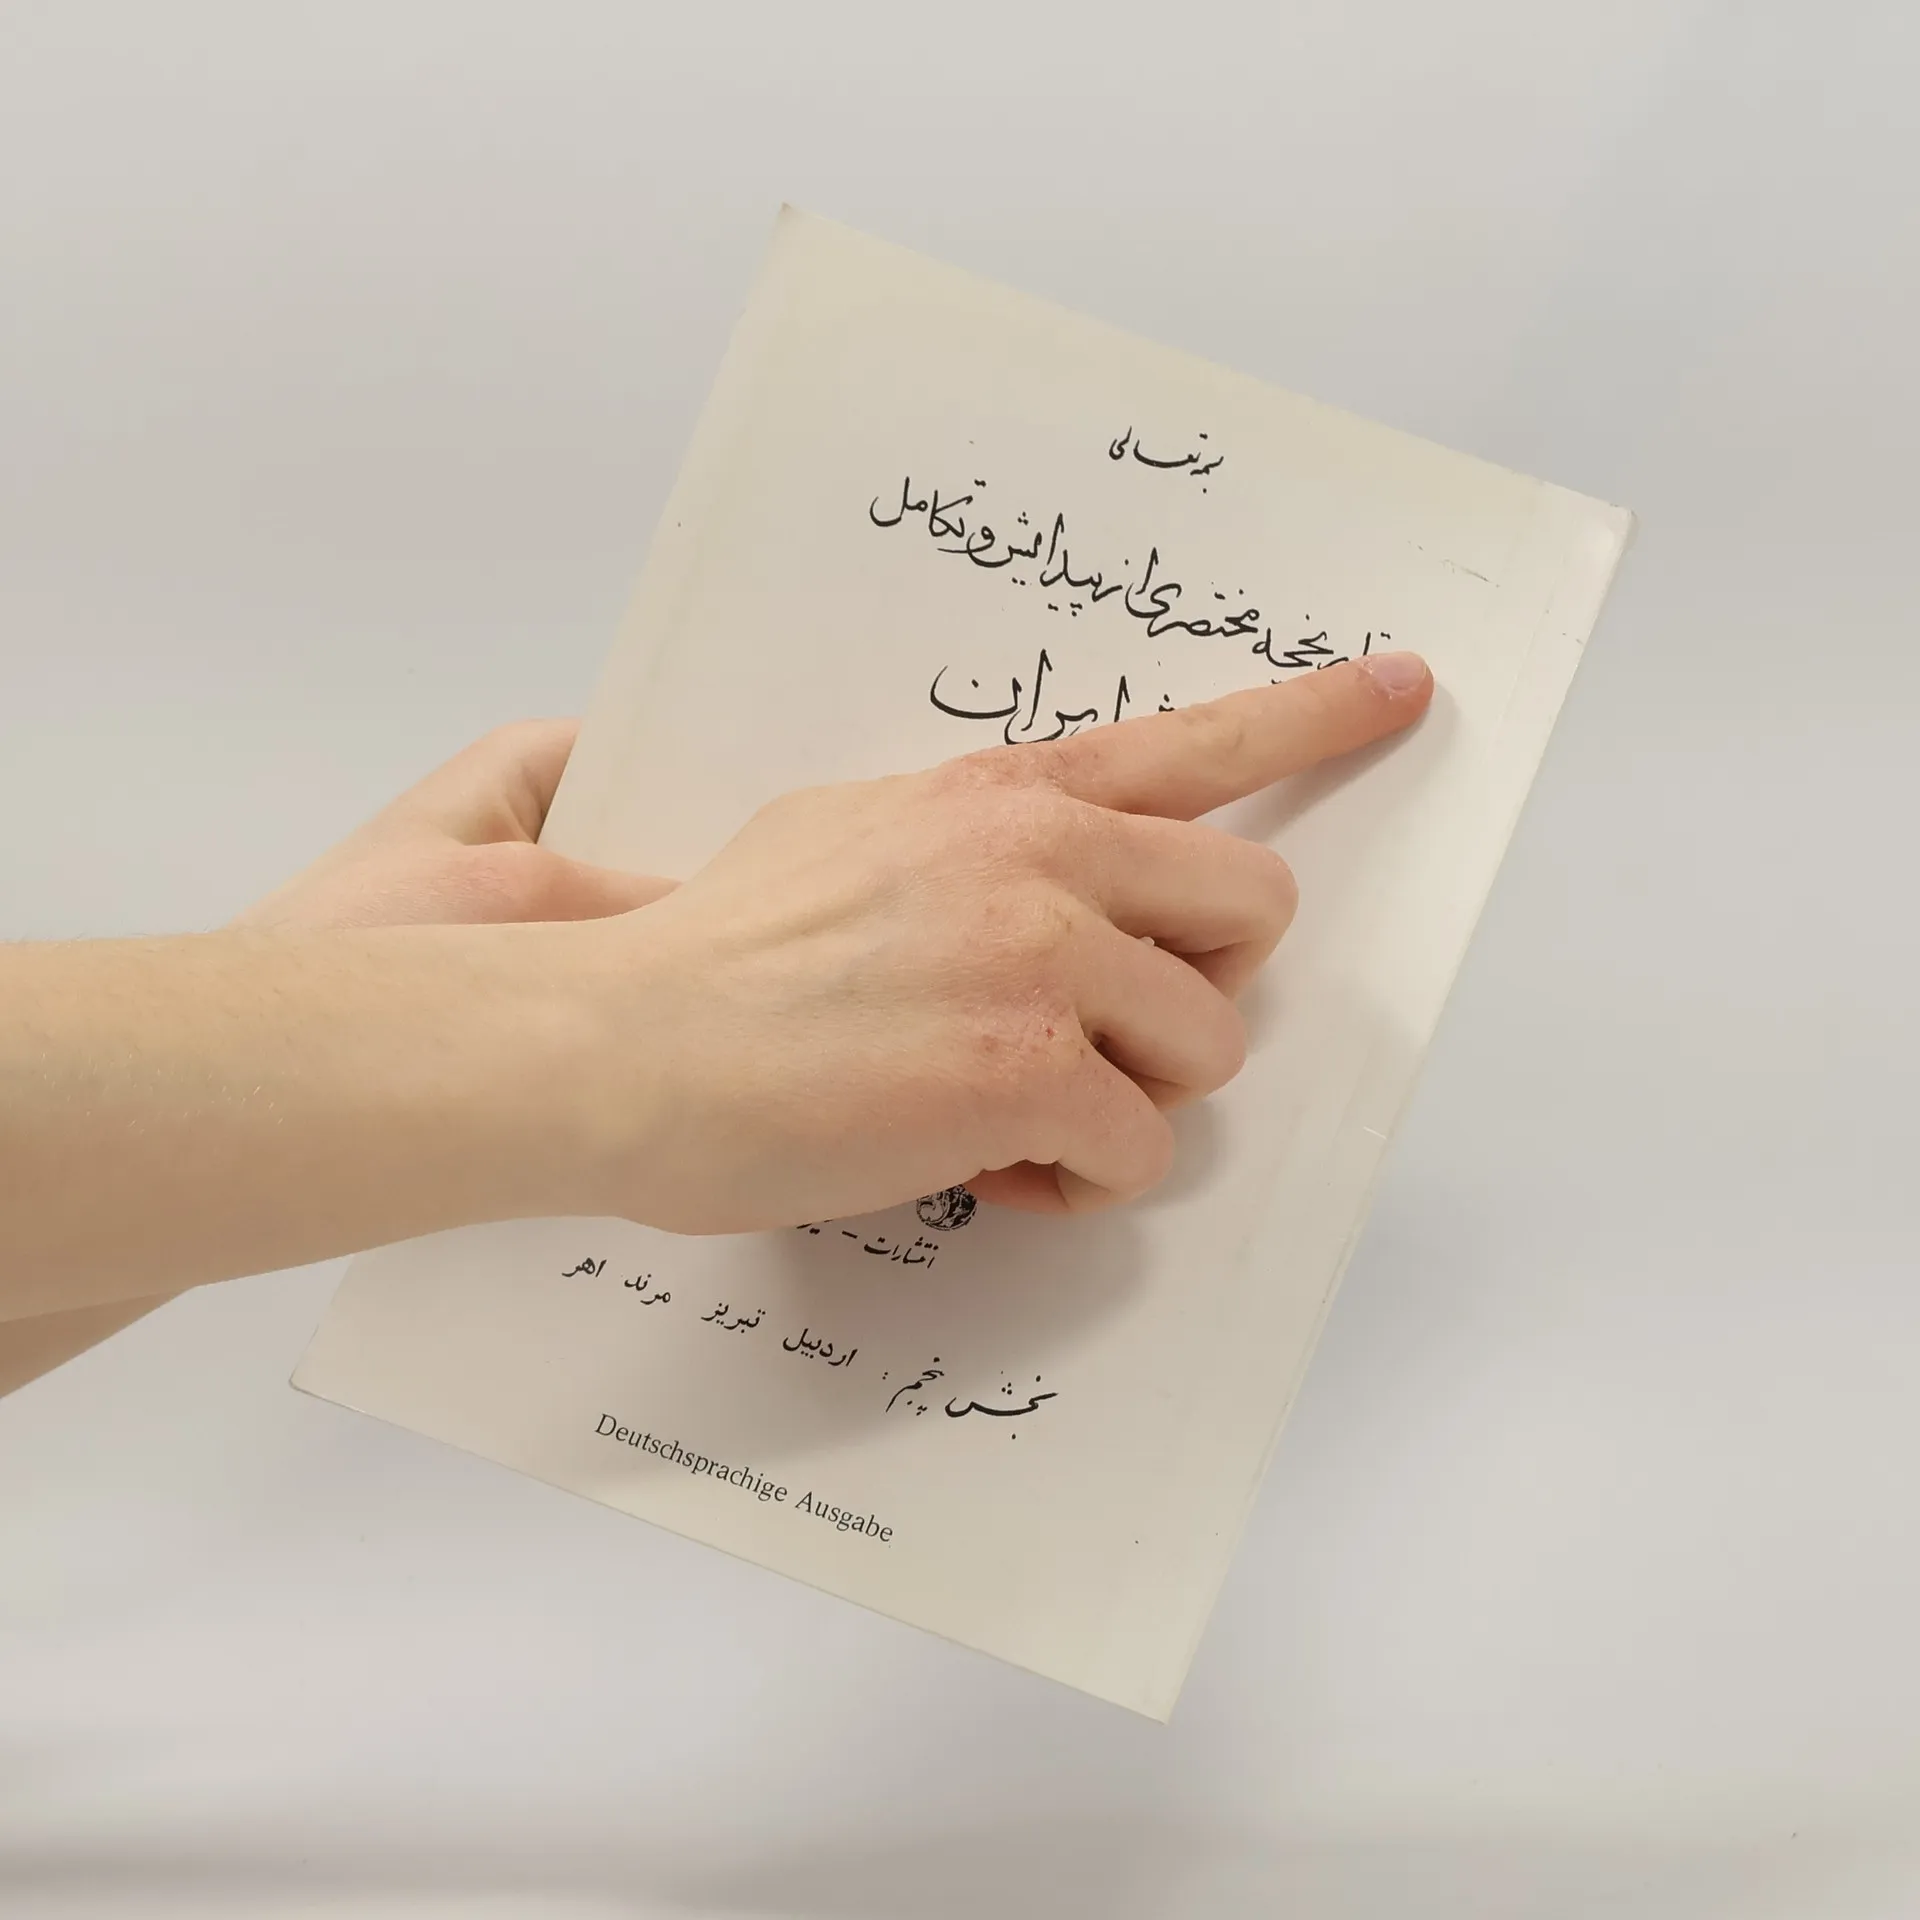 بسمه تعالی
تاریخچه مختصری از پیدایش و تکامل
ایران
انتشارات -
بخش پنجم : اردبیل تبریز مرند اهر
Deutschsprachige Ausgabe